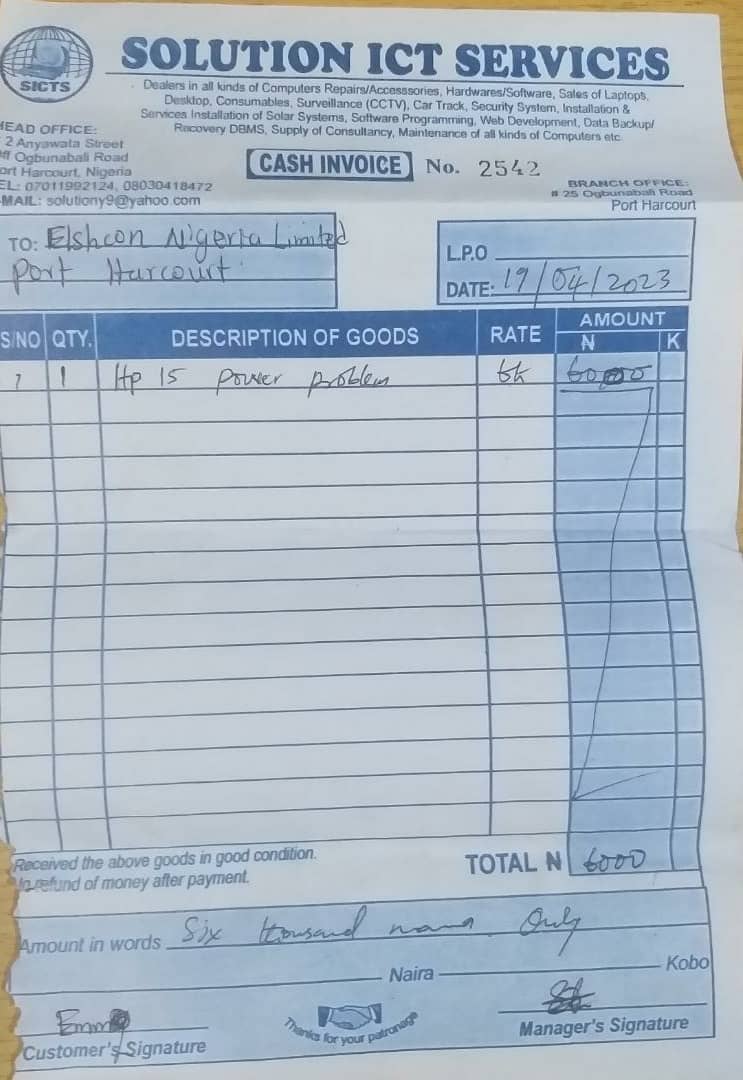 SICTS
SOLUTION ICT SERVICES
Dealers in all kinds of Computers Repairs/Accesssories, Hardwares/Software, Sales of Laptops,
Desktop, Consumables, Surveillance (CCTV), Car Track, Security System, Installation &
Services Installation of Solar Systems, Software Programming, Web Development, Data Backup/
Recovery DBMS, Supply of Consultancy, Maintenance of all kinds of Computers etc.
HEAD OFFICE:
2 Anyawata Street
Off Ogbunabali Road
Port Harcourt, Nigeria
TEL: 07011992124, 08030418472
E-MAIL: solutiony9@yahoo.com
CASH INVOICE No. 2542
BRANCH OFFICE:
# 25 Ogbunabali Road
Port Harcourt
TO: Elshcon Nigeria Limited
Port Harcourt
L.P.O
DATE: 19/04/2023
S/NO QTY. DESCRIPTION OF GOODS RATE AMOUNT
N K
1 1 Hp 15 power problem 6k
Received the above goods in good condition.
No refund of money after payment.
TOTAL N 6000
Amount in words Six thousand naira Only
Naira Kobo
Customer's Signature
Thanks for your patronage
Manager's Signature